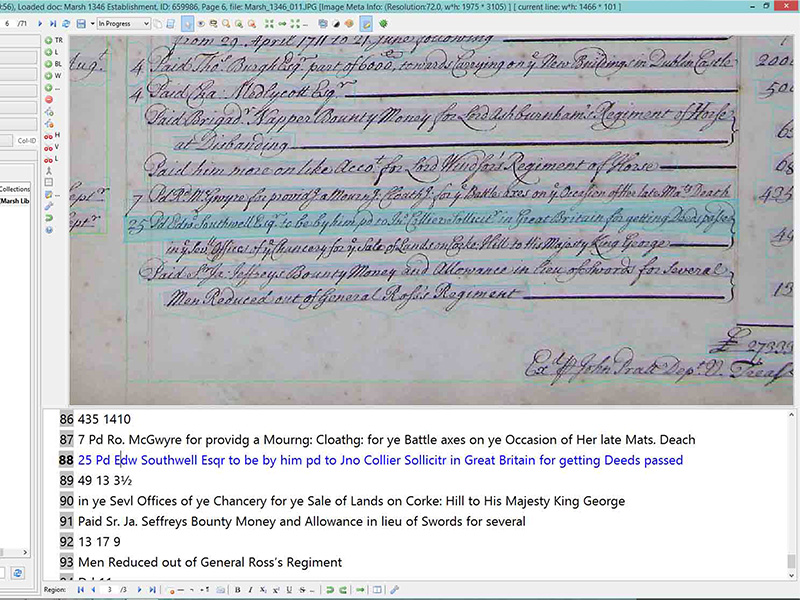 :56), Loaded doc: Marsh 1346 Establishment, ID: 659986, Page 6, file: Marsh_1346_011.JPG [Image Meta Info: (Resolution:72.0, w*h: 1975 * 3105) ] [ current line: w*h: 1466 * 101 ]
6 /71 In Progress
TR
L
BL
W
H
V
L
Col-ID
Collections
(Marsh Lib
from 29. April 1711 to 21 June following
Augt. 4 Paid Thos. Burgh Esqr. part of 6000, towards Carrying on ye New Buildings in Dublin Castle 2000
4 Paid Cha. Medlycott Esqr. 500
Paid Brigadr. Napper Bounty Money for Lord Ashburnham's Regiment of Horse
at Disbanding
Paid him more on like Accot. for Lord Windsor's Regiment of Horse 68
Septr. 7 Pd Ro. McGwyre for providg a Mourng. Cloathg. for ye Battle axes on ye Occasion of Her late Mats. Death 435
Septr. 25 Pd Edw. Southwell Esqr. to be by him pd to Jno. Collier Sollicitr. in Great Britain for getting Deeds passed
in ye Sevl. Offices of ye Chancery for ye Sale of Lands on Corke Hill to His Majesty King George 49
Paid Sr. Ja. Jeffreys Bounty Money and Allowance in lieu of Swords for several
Men Reduced out of General Ross's Regiment 13
£ 27339
Exd. p John Pratt Dept. V. Treasr
86 435 1410
87 7 Pd Ro. McGwyre for providg a Mourng: Cloathg: for ye Battle axes on ye Occasion of Her late Mats. Deach
88 25 Pd Edw Southwell Esqr to be by him pd to Jno Collier Sollicitr in Great Britain for getting Deeds passed
89 49 13 3½
90 in ye Sevl Offices of ye Chancery for ye Sale of Lands on Corke: Hill to His Majesty King George
91 Paid Sr. Ja. Seffreys Bounty Money and Allowance in lieu of Swords for several
92 13 17 9
93 Men Reduced out of General Ross's Regiment
Region: 3 /3 B I X₁ X¹ U S